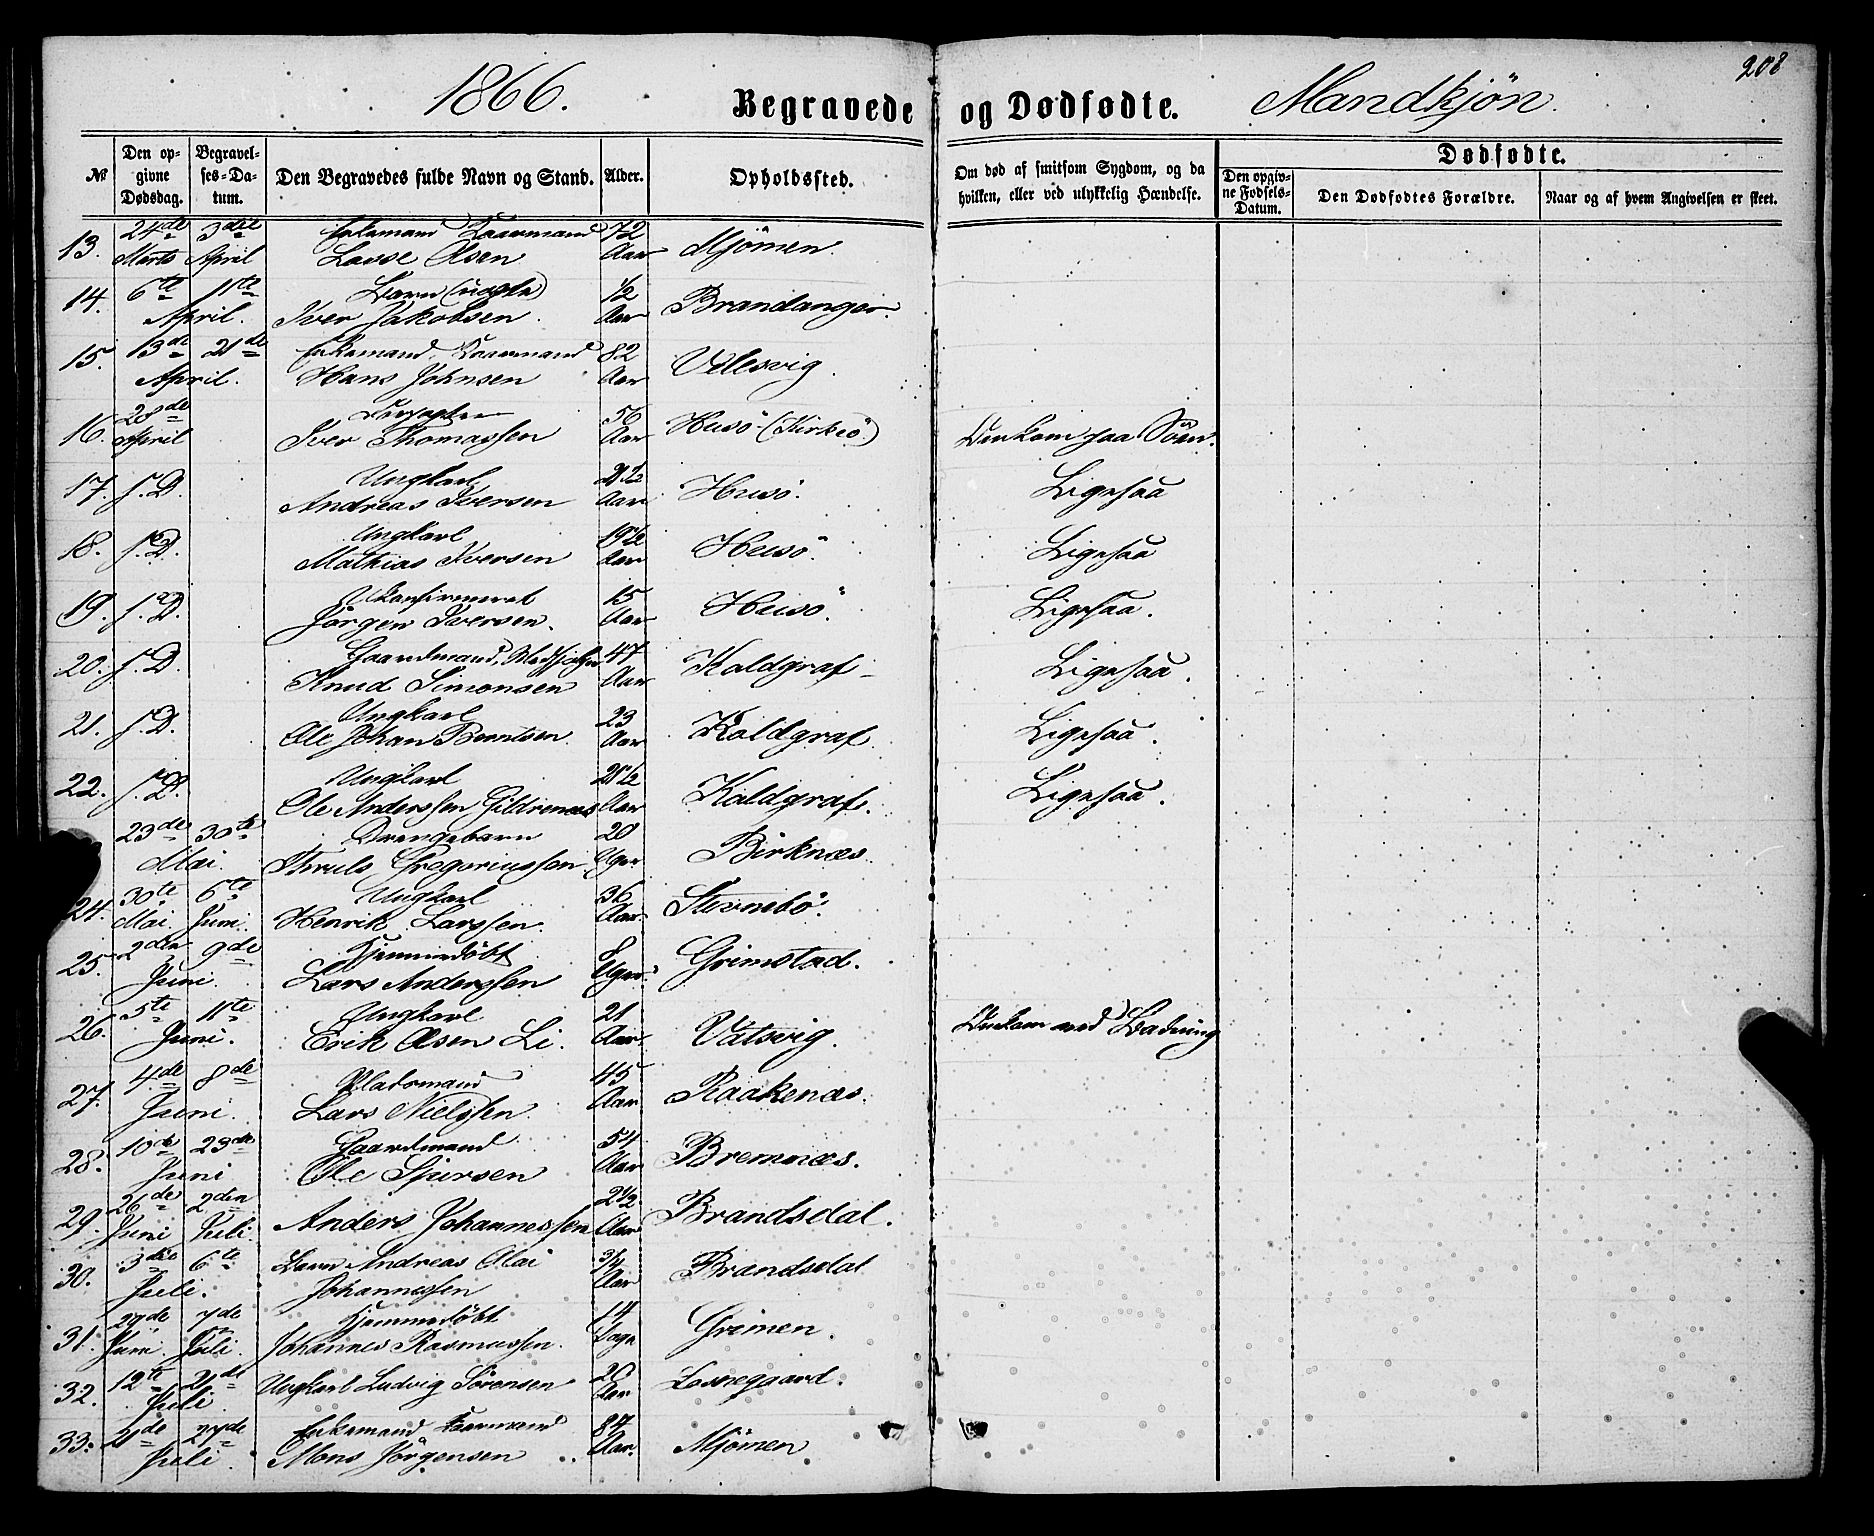 208
1866. Begravede og Dødfødte. Mandkjøn.
№ Den opgivne Dødsdag. Begravelses-Datum. Den Begravedes fulde Navn og Stand. Alder. Opholdssted. Om død af smitsom Sygdom, og da hvilken, eller ved ulykkelig Hændelse. Dødfødte.
Den opgivne Fødsels-Datum. Den Dødfødtes Forældre. Naar og af hvem Angivelsen er skeet.
13. 24de Marts 3die April Enkemand Kaarmand 72 Aar Mjömen.
Lasse Olsen
14. 6te 11te April. Barn (uægte) 1/2 Aar Brandanger.
Iver Jakobsen.
15. 13de 21de April. Enkemand. Kaarmand 82 Aar Vellesvig.
Hans Johnsen
16. 28de April 56 Aar Husö (Kirkeö) Omkom paa Söen.
Iver Thomassen
17. s. D. Ungkarl 21 1/2 Aar Husö. Ligesaa
Andreas Iversen
18. s. D. Ungkarl 19 1/2 Aar Husö. Ligesaa
Mathias Iversen
19. s. D. Ukonfirmeret 15 Aar Husö. Ligesaa.
Jörgen Iversen.
20. s. D. Gaardmand, 47 Aar Koldgraf Ligesaa.
Knud Simonsen
21. s. D. Ungkarl 23 Aar Koldgraf. Ligesaa.
Ole Johan Berntsen.
22. s. D. Ungkarl 21 1/2 Aar Koldgraf. Ligesaa.
Ole Anderssen Gildrenæs
23de 30te Mai. Drengebarn 20 Uger Birknæs.
Thruls Gregoriussen
24. 30te Mai 6te Juni. Ungkarl 36 Aar. Stevnebö.
Henrik Larssen.
25. 2den 9de Juni. Hjemmedöbt 8 Uger. Grimstad.
Lars Anderssen
26. 5te 11te Juni. Ungkarl 21 Aar. Vatsvig. Omkom ved
Erik Olsen Li.
27. 4de 8de Juni. Pladsmand 45 Aar Raakenæs.
Lars Nielssen
28. 10de 23de Juni Gaardmand 54 Aar Bremnæs.
Ole Sjursen
29. 26de Juni 2den Juli. Anders Johannessen 2 1/2 Aar Brandsdal.
30. 3die 6te Juli. Barn Andreas Olai 3/4 Aar Brandsdal
Johannessen
31. 27de Juni. 7de Juli. Hjemmedöbt 14 Dage Grimen.
Johannes Rasmussen.
32. 12te 21de Juli Ungkarl Ludvig Sörensen 20 Aar Losnegaard.
33. 21de 27de Juli. Enkemand Kaarmand 87 Aar. Mjömen
Mons Jörgensen